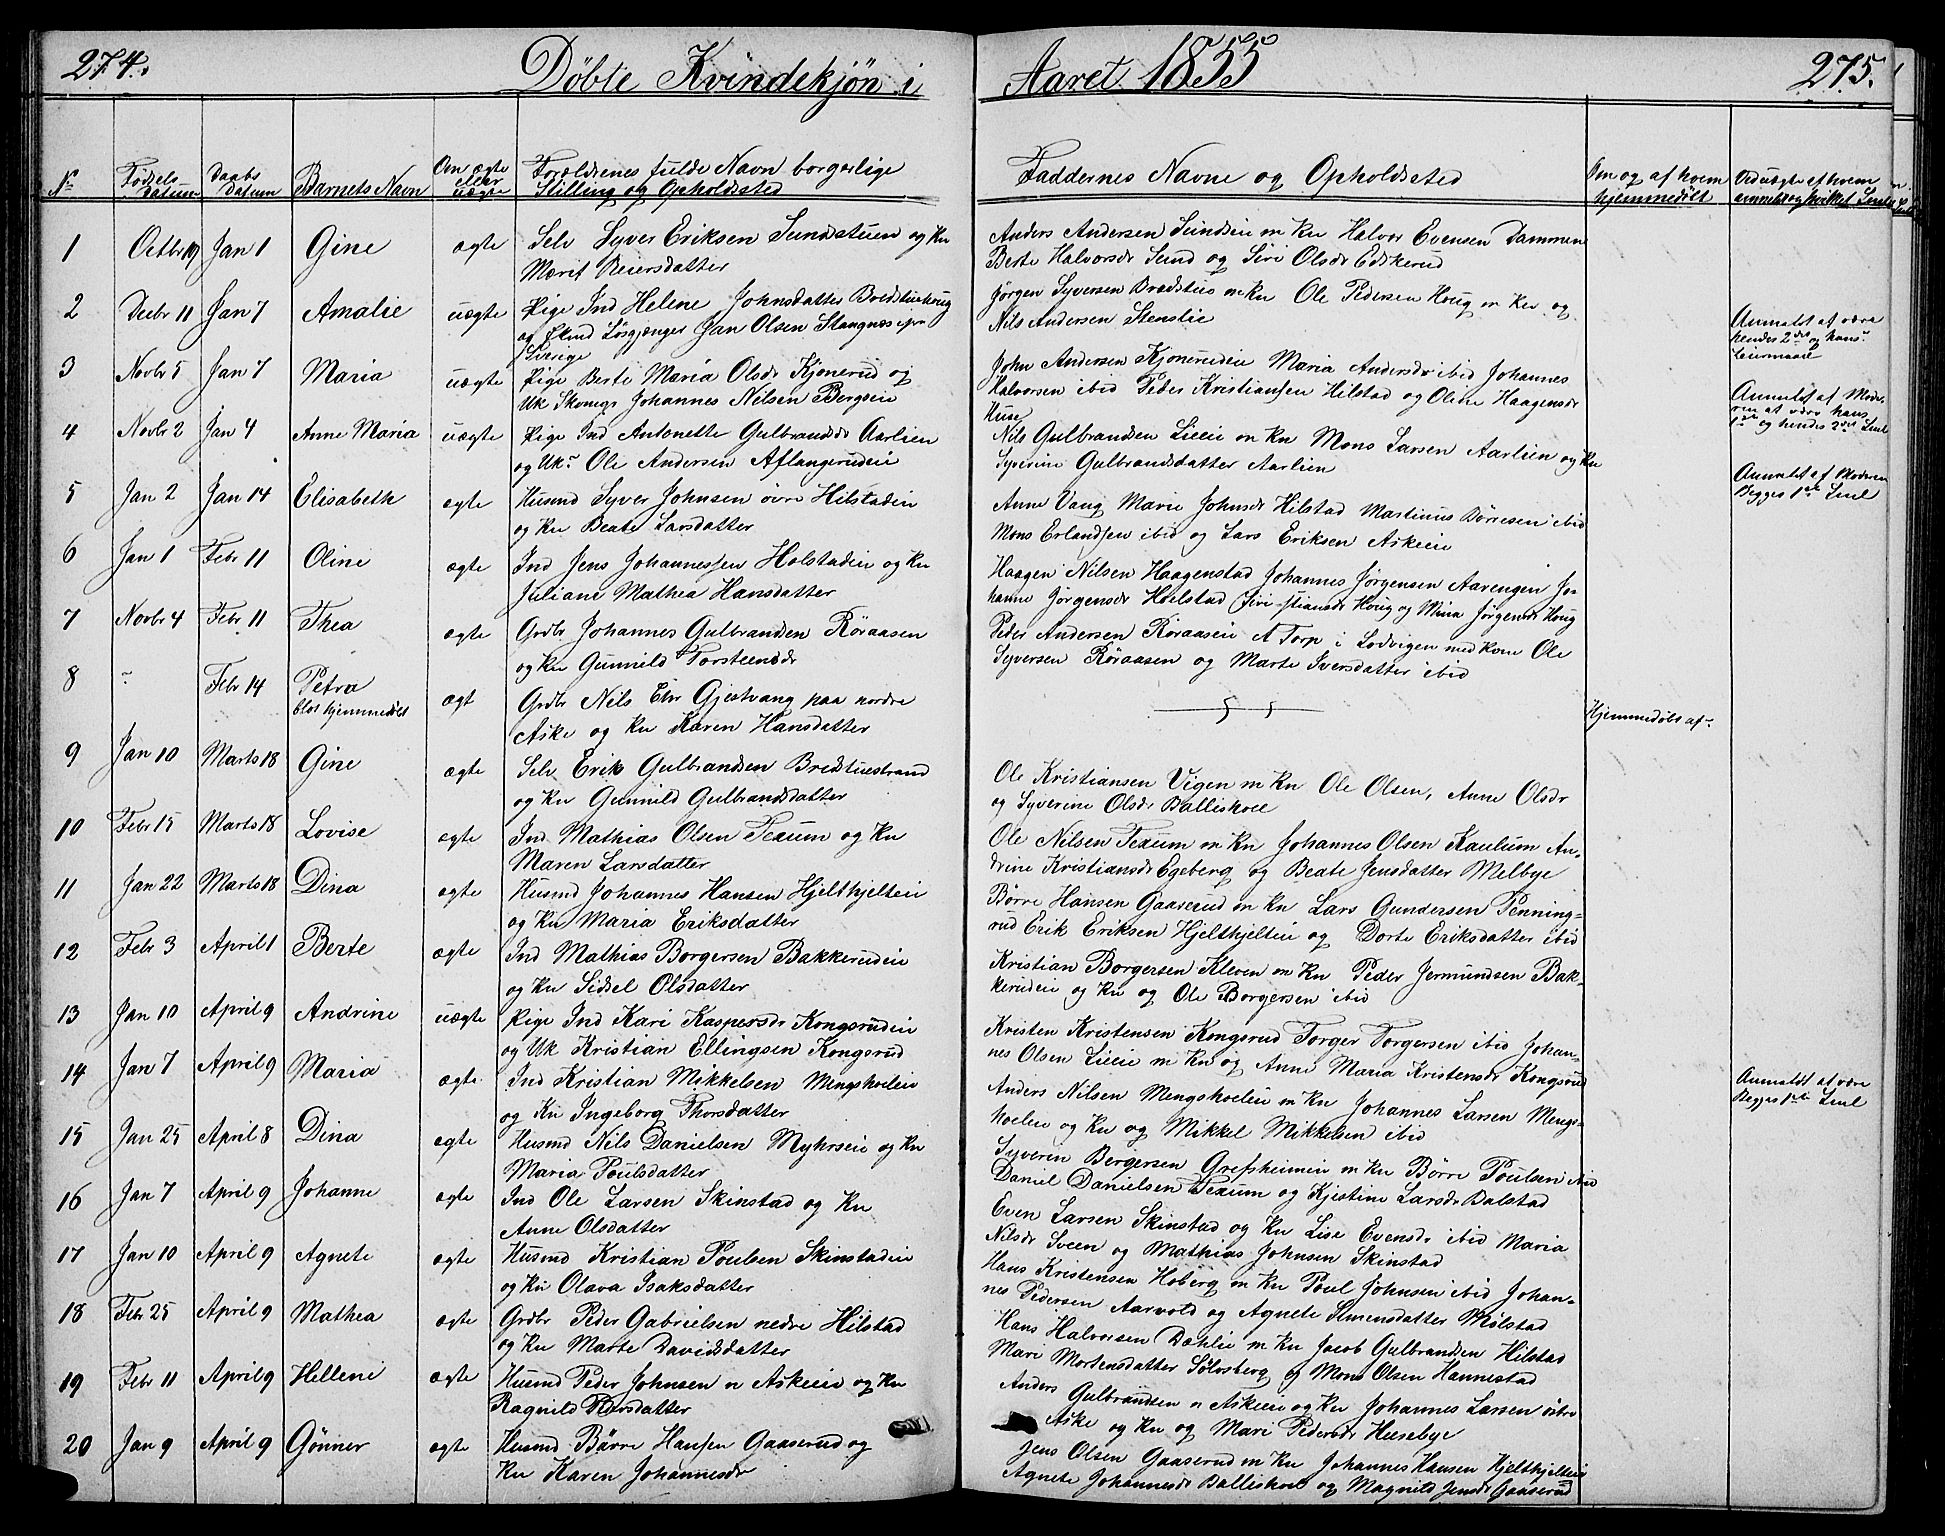 274.
Døbte Kvindekjøn i
Aaret 1855
275.
No
Fødsels Datum
Daabs Datum
Barnets Navn
Om ægte eller uægte
Forældrenes fulde Navn borgerlige
Stilling og Opholdssted
Faddernes Navne og Opholdsted
Om og af hvem
hjemmedøbt
Ved uægte af hvem
anmeldt og hvilket Leier
1 Octbr 19 Jan 1 Gine ægte Selv Syver Eriksen Sundstuen og Kn
Marit Reiersdatter
Anders Andersen Sundeie m Kn Halvor Evensen Dammen
Berte Halvorsdr Sund og Siri Olsdr
2 Decbr 11 Jan 7 Amalie uægte Pige Ind Helene Johnsdatter Bredstuehoug
og Løsgjænger Jan Olsen Stangnes
Sverige
Jørgen Syversen Bredstue m Kn Ole Pedersen Houg m Kn og
Nils Andersen Stenslie
Anmeldt at være
hendes 2det og hans
Leiermaal
3 Novbr 5 Jan 7 Maria uægte Pige Berte Maria Olsdr Kjønerud og
Uk Johannes Nilsen Bergseie
John Andersen Kjønerudeie Maria Andersdr ibid Johannes
Halvorsen ibid Peder Kristiansen Hilstad og Oline Haagensdr
Huse
Anmeldt af Moder
at være hans
1ste og hendes 2det
4 Novbr 2 Jan 4 Anne Maria uægte Pige Ind Antonette Gulbrandsdr Aarlien
og Uk Ole Andersen Aflangerudeie
Nils Gulbrandsen Lieeie m Kn Mons Larsen Aarlien og Kn
Syverine Gulbrandsdatter Aarlien
Anmeldt af Moderen
Begges 1ste
5 Jan 2 Jan 14 Elisabeth ægte Husmd Syver Johnsen øvre Hilstadeie
og Kn Beate Larsdatter
Anne Vang Marie Johnsdr Hilstad Martinus Børresen ibid
Mons Erlandsen ibid og Lars Eriksen Askeeie
6 Jan 1 Febr 11 Oline ægte Ind Jens Johannessen Holstadeie og Kn
Juliane Mathea Hansdatter
Haagen Nilsen Haagenstad Johannes Jørgensen Aarengen Jo-
hanne Jørgensdr Hoelstad Houg og Mina Jørgensdr Houg
7 Novbr 4 Febr 11 Thea ægte Grdbr Johannes Gulbrandsen Røraasen
og Kn Gunnild Torsteensdr
Peder Andersen Røraaseie A Torp i Lodvigen med Kone Ole
Syversen Røraasen og Marte Iversdatter ibid
8 " Febr 14 Petra
blot hjemmedøbt
ægt Grdbr Nils Gjestvang paa nordre
Aske og Kn Karen Hansdatter
Hjemmedøbt af
9 Jan 10 Marts 18 Gine ægte Selv Erik Gulbrandsen Bredstuestrand
og Kn Gunnild Gulbrandsdatter
Ole Kristiansen Vigen m Kn Ole Olsen, Anne Olsdr
og Syverine Olsdr Balliskoel
10 Febr 15 Marts 18 Lovise ægte Ind Mathias Olsen Texum og Kn
Maren Larsdatter
Ole Nilsen Texum m Kn Johannes Olsen Kaulum An-
drine Kristiansdr Egeberg og Beate Jensdatter Melbye
11 Jan 22 Marts 18 Dina ægte Husmd Johannes Hansen Hjelthjelteie
og Kn Maria Eriksdatter
Børre Hansen Gaaserud m Kn Lars Gundersen Penning-
rud Erik Eriksen Hjelthjelteie og Dorte Eriksdatter ibid
12 Febr 3 April 1 Berte ægte Ind Mathias Borgersen Bakkerudeie
og Kn Sidsel Olsdatter
Kristian Borgersen Kleven m Kn Peder Jermundsen Bak-
kerudeie og Kn og Ole Borgersen ibid
13 Jan 10 April 9 Andrine uægte Pige Ind Kari Kaspersdr Kongsrudeie
og Uk Kristian Ellingsen Kongsrud
Kristen Kristensen Kongsrud Torger Torgersen ibid Johan-
nes Olsen Lieeie m Kn og Anne Maria Kristensdr Kongsrud
Anmeldt at være
Begges 1ste
14 Jan 7 April 9 Maria ægte Ind Kristian Mikkelsen Mengshoeleie
og Kn Ingeborg Thorsdatter
Anders Nilsen Mengshoeleie m Kn Johannes Larsen Mengs-
hoeleie og Kn og Mikkel Mikkelsen ibid
15 Jan 25 April 8 Dina ægte Husmd Nils Danielsen Myhrseie og Kn
Maria Poulsdatter
Syveren Bergersen Grefsheimeie m Kn Børre Poulsen ibid
Daniel Danielsen Texum og Kjestine Larsdr Balstad
16 Jan 7 April 9 Johanne ægte Ind Ole Larsen Skinstad og Kn
Anne Olsdatter
Even Larsen Skinstad og Kn Lise Evensdr ibid Maria
Nilsdr Sveen og Mathias Johnsen Skinstad
17 Jan 10 April 9 Agnete ægte Husmd Kristian Poulsen Skinstadeie
og Kn Olava Isaksdatter
Hans Kristensen Hoberg m Kn Poul Johnsen ibid Johan-
nes Pedersen Aarvold og Agnete Simensdatter Mølstad
18 Febr 25 April 9 Mathea ægte Grdbr Peder Gabrielsen nedre Hilstad
og Kn Marte Davidsdatter
Hans Halvorsen Dæhlie m Kn Jacob Gulbrandsen Hilstad
Mari Mortensdatter Solvsberg og Mons Olsen Hannestad
19 Febr 11 April 9 Hellene ægte Husmd Peder Johnsen n Askeeie og Kn
Ragnild Iversdatter
Anders Gulbrandsen n Askeeie og Kn Johannes Larsen østre
Aske og Kn og Mari Pedersdr Huusebye
20 Jan 9 April 9 Gønner ægte Husmd Børre Hansen Gaaserud og
Kn Karen Johannesdr
Jens Olsen Gaaserud m Kn Johannes Hansen Hjelthjelteie
Agnete Johannesdr Balliskoel og Magnild Jensdr Gaaserud